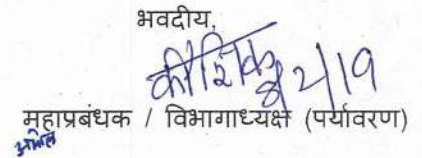 भवदीय,
कौशिक
8/2/19
महाप्रबंधक / विभागाध्यक्ष (पर्यावरण)